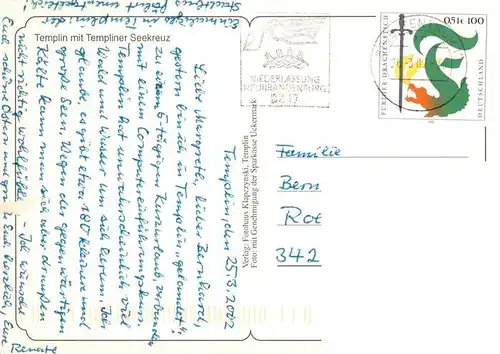 Stadtbus fährt unentgeltlich!
Einmaliges in Templin: der
Templin mit Templiner Seekreuz
Templin, den 25.3.2002
Liebe Margreth, lieber Bernhard,
gestern bin ich in Templin „gelandet“,
zu einem 5-tägigen Kurzurlaub, verbunden
mit einem Computereinführungskurs.
Templin hat unwahrscheinlich viel
Wald und Wasser um sich herum. Ich
glaube, es gibt etwa 180 kleine und
große Seen. Wegen der gegenwärtigen
Kälte kann man sich aber draußen
nicht richtig wohlfühlen. - Ich wünsche
Euch schöne Ostern und grüße Euch herzlich, Eure
Renate
Verlag: Fotohaus Klapczynski, Templin
Foto: mit Genehmigung der Sparkasse Uckermark
NIEDERLASSUNG
NEUBRANDENBURG
BZ 17
FURTHER DRACHENSTICH
0,51€ 100
DEUTSCHLAND
Familie
Bern
Rot
342